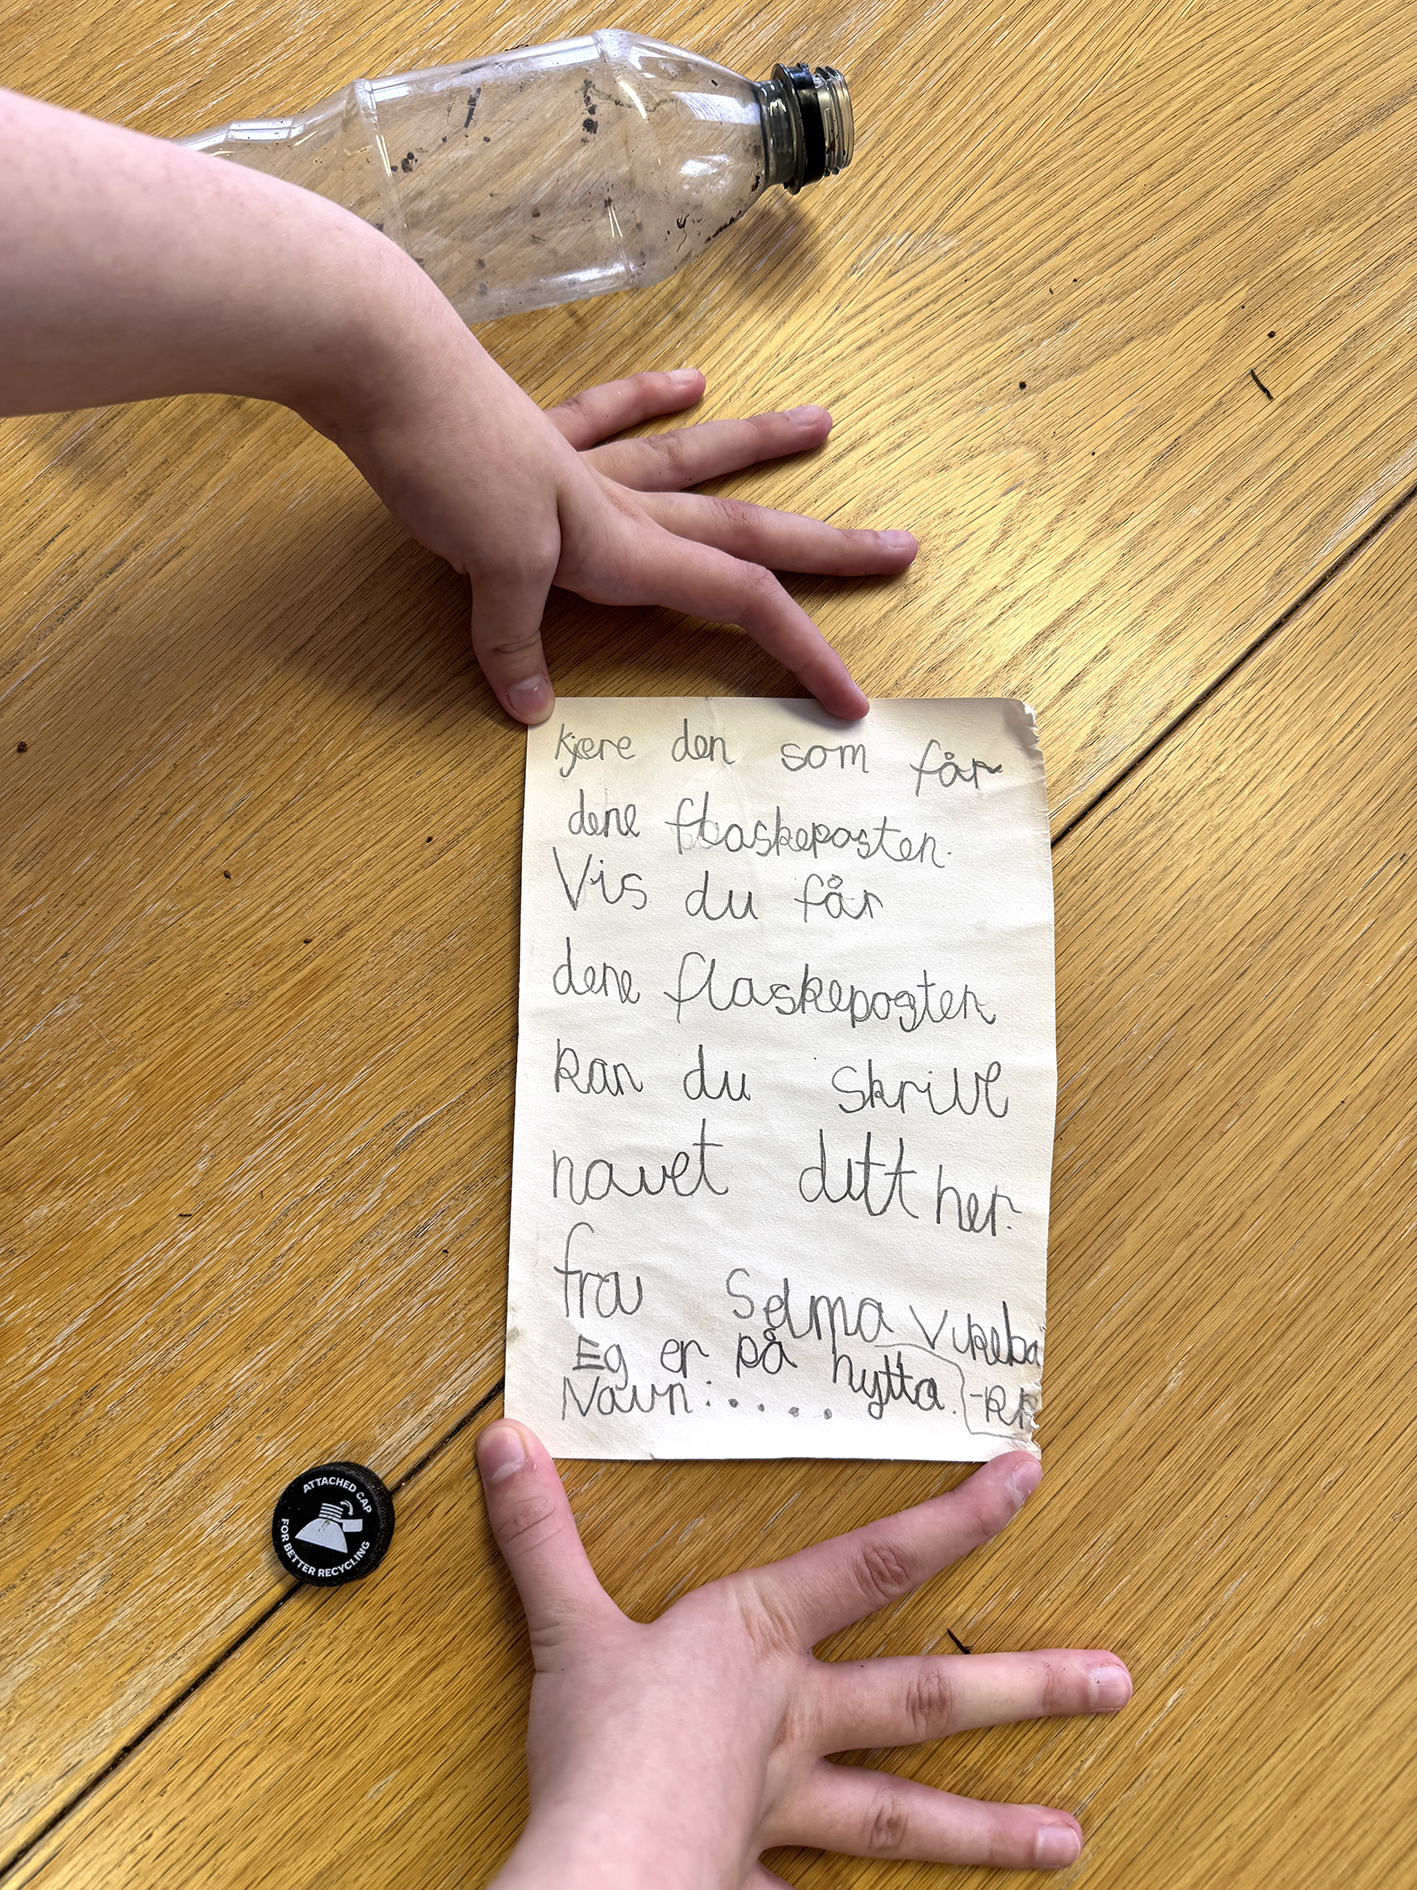 kjære den som får
dene flaskeposten.
Vis du får
dene flaskeposten
kan du skrive
navet ditt her.
fra Selma Vikeba
-kk
Eg er på hytta.
Navn:....
ATTACHED CAP
FOR BETTER RECYCLING